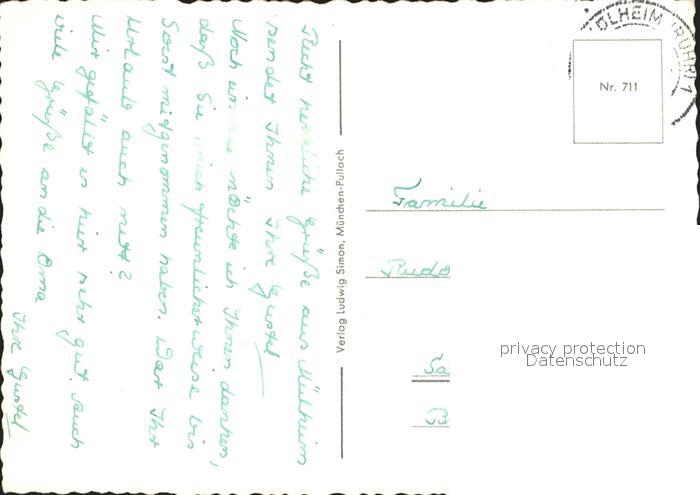 Recht herzliche Grüße aus Mülheim
sendet Ihnen Ihre Gustel
Noch einmal möchte ich Ihnen danken,
daß Sie mich freundlicherweise bis
Soest mitgenommen haben. War Ihr
Urlaub auch nett?
Mir gefällt es hier sehr gut. Auch
viele Grüße an die Oma
Ihre Gustel
Verlag Ludwig Simon, München-Pullach
ÖLHEIM (RUHR) 1
Nr. 711
Familie
Rudo
Sa
privacy protection
Datenschutz